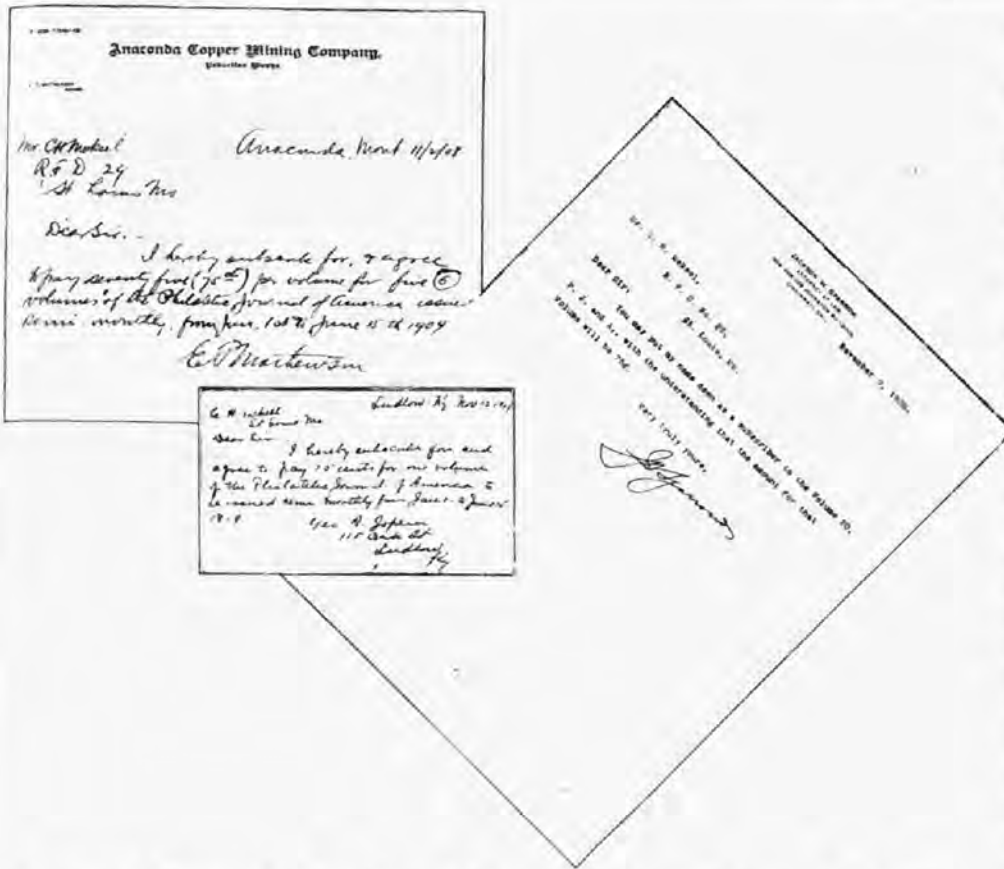 Anaconda Copper Mining Company.
Mr. CH Mekeel
Anaconda, Mont 11/2/08
R.F.D 29
St Louis Mo
Dear Sir.-
I hereby subscribe for, & agree
to pay seventy five (75 cts) per volume for five (5)
volumes of the Philatelic Journal of America issued
semi monthly, from Jan. 1st to June 15th 1909
E P Mathewson
Ludlow Ky Nov 12
C. H. Mekeel
St Louis Mo
Dear Sir
I hereby subscribe for and
agree to pay 75 cents for one volume
of the Philatelic Journal of America to
be issued semi monthly from Jan 1 to June
Geo. A.
115 Oak St
Ludlow
Ky
November 9, 1908.
Mr. C. H. Mekeel,
R. F. D. No. 29,
St. Louis, Mo.
Dear Sir:
You may put my name down as a subscriber to the Volume 20,
P. J. of A., with the understanding that the amount for that
Volume will be 75¢.
Very truly yours,